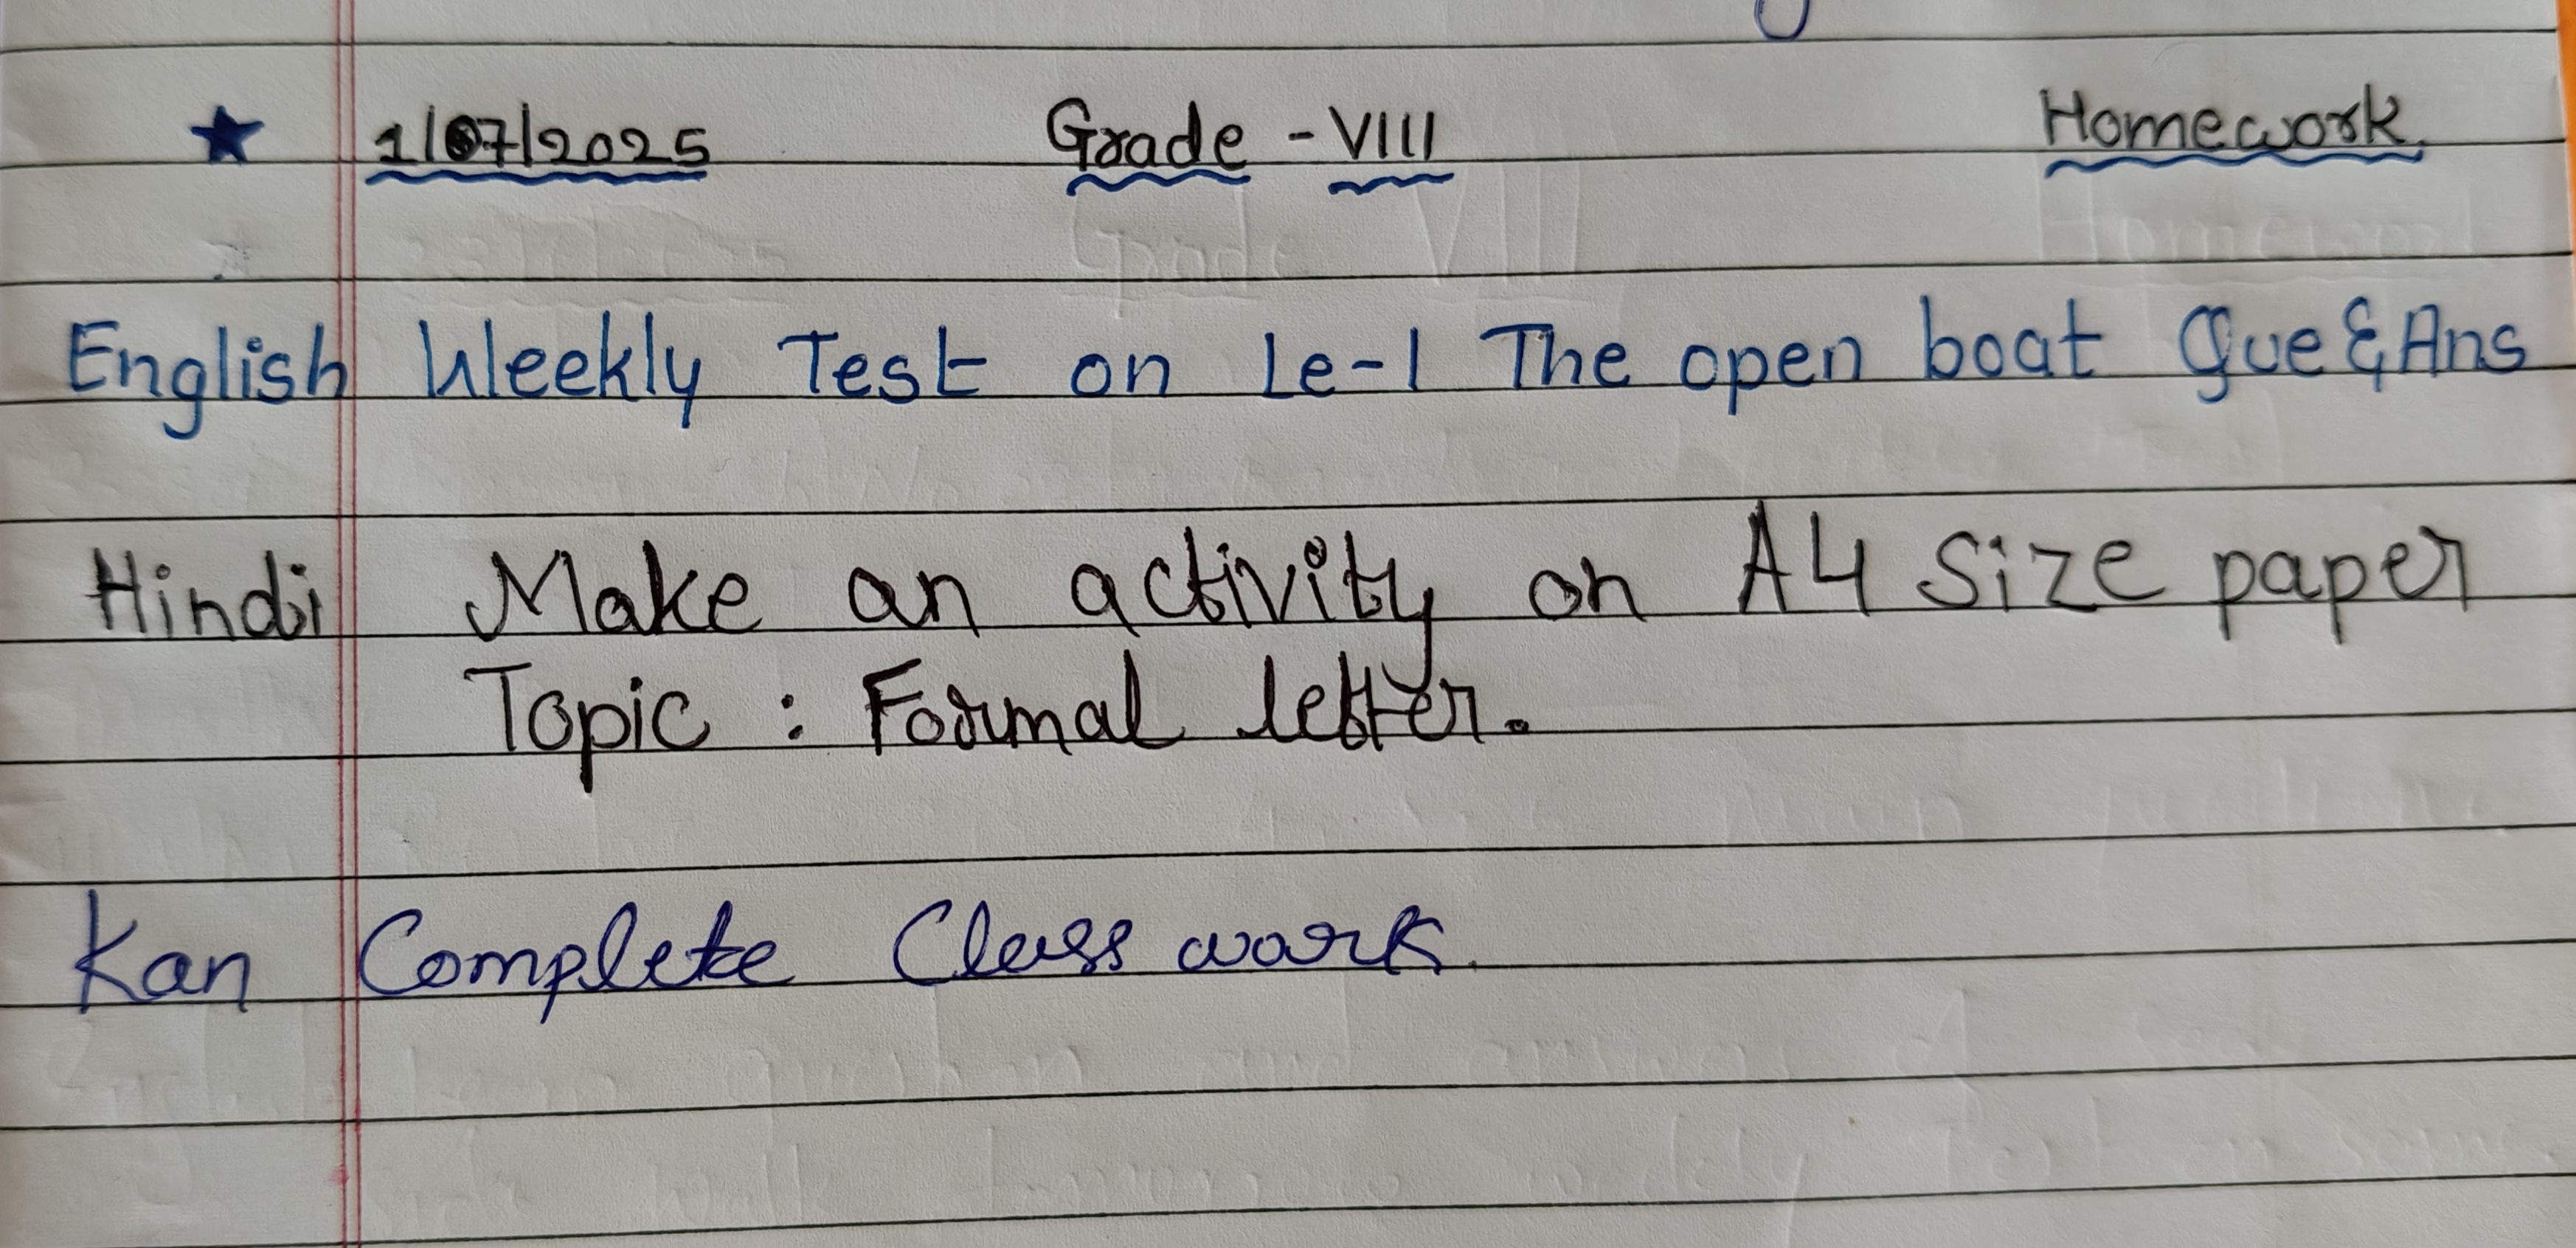 ★ 1/07/2025 Grade - VIII Homework.
English Weekly Test on Le-1 The open boat Que & Ans
Hindi Make an activity on A4 size paper
Topic : Formal letter.
Kan Complete Class work.